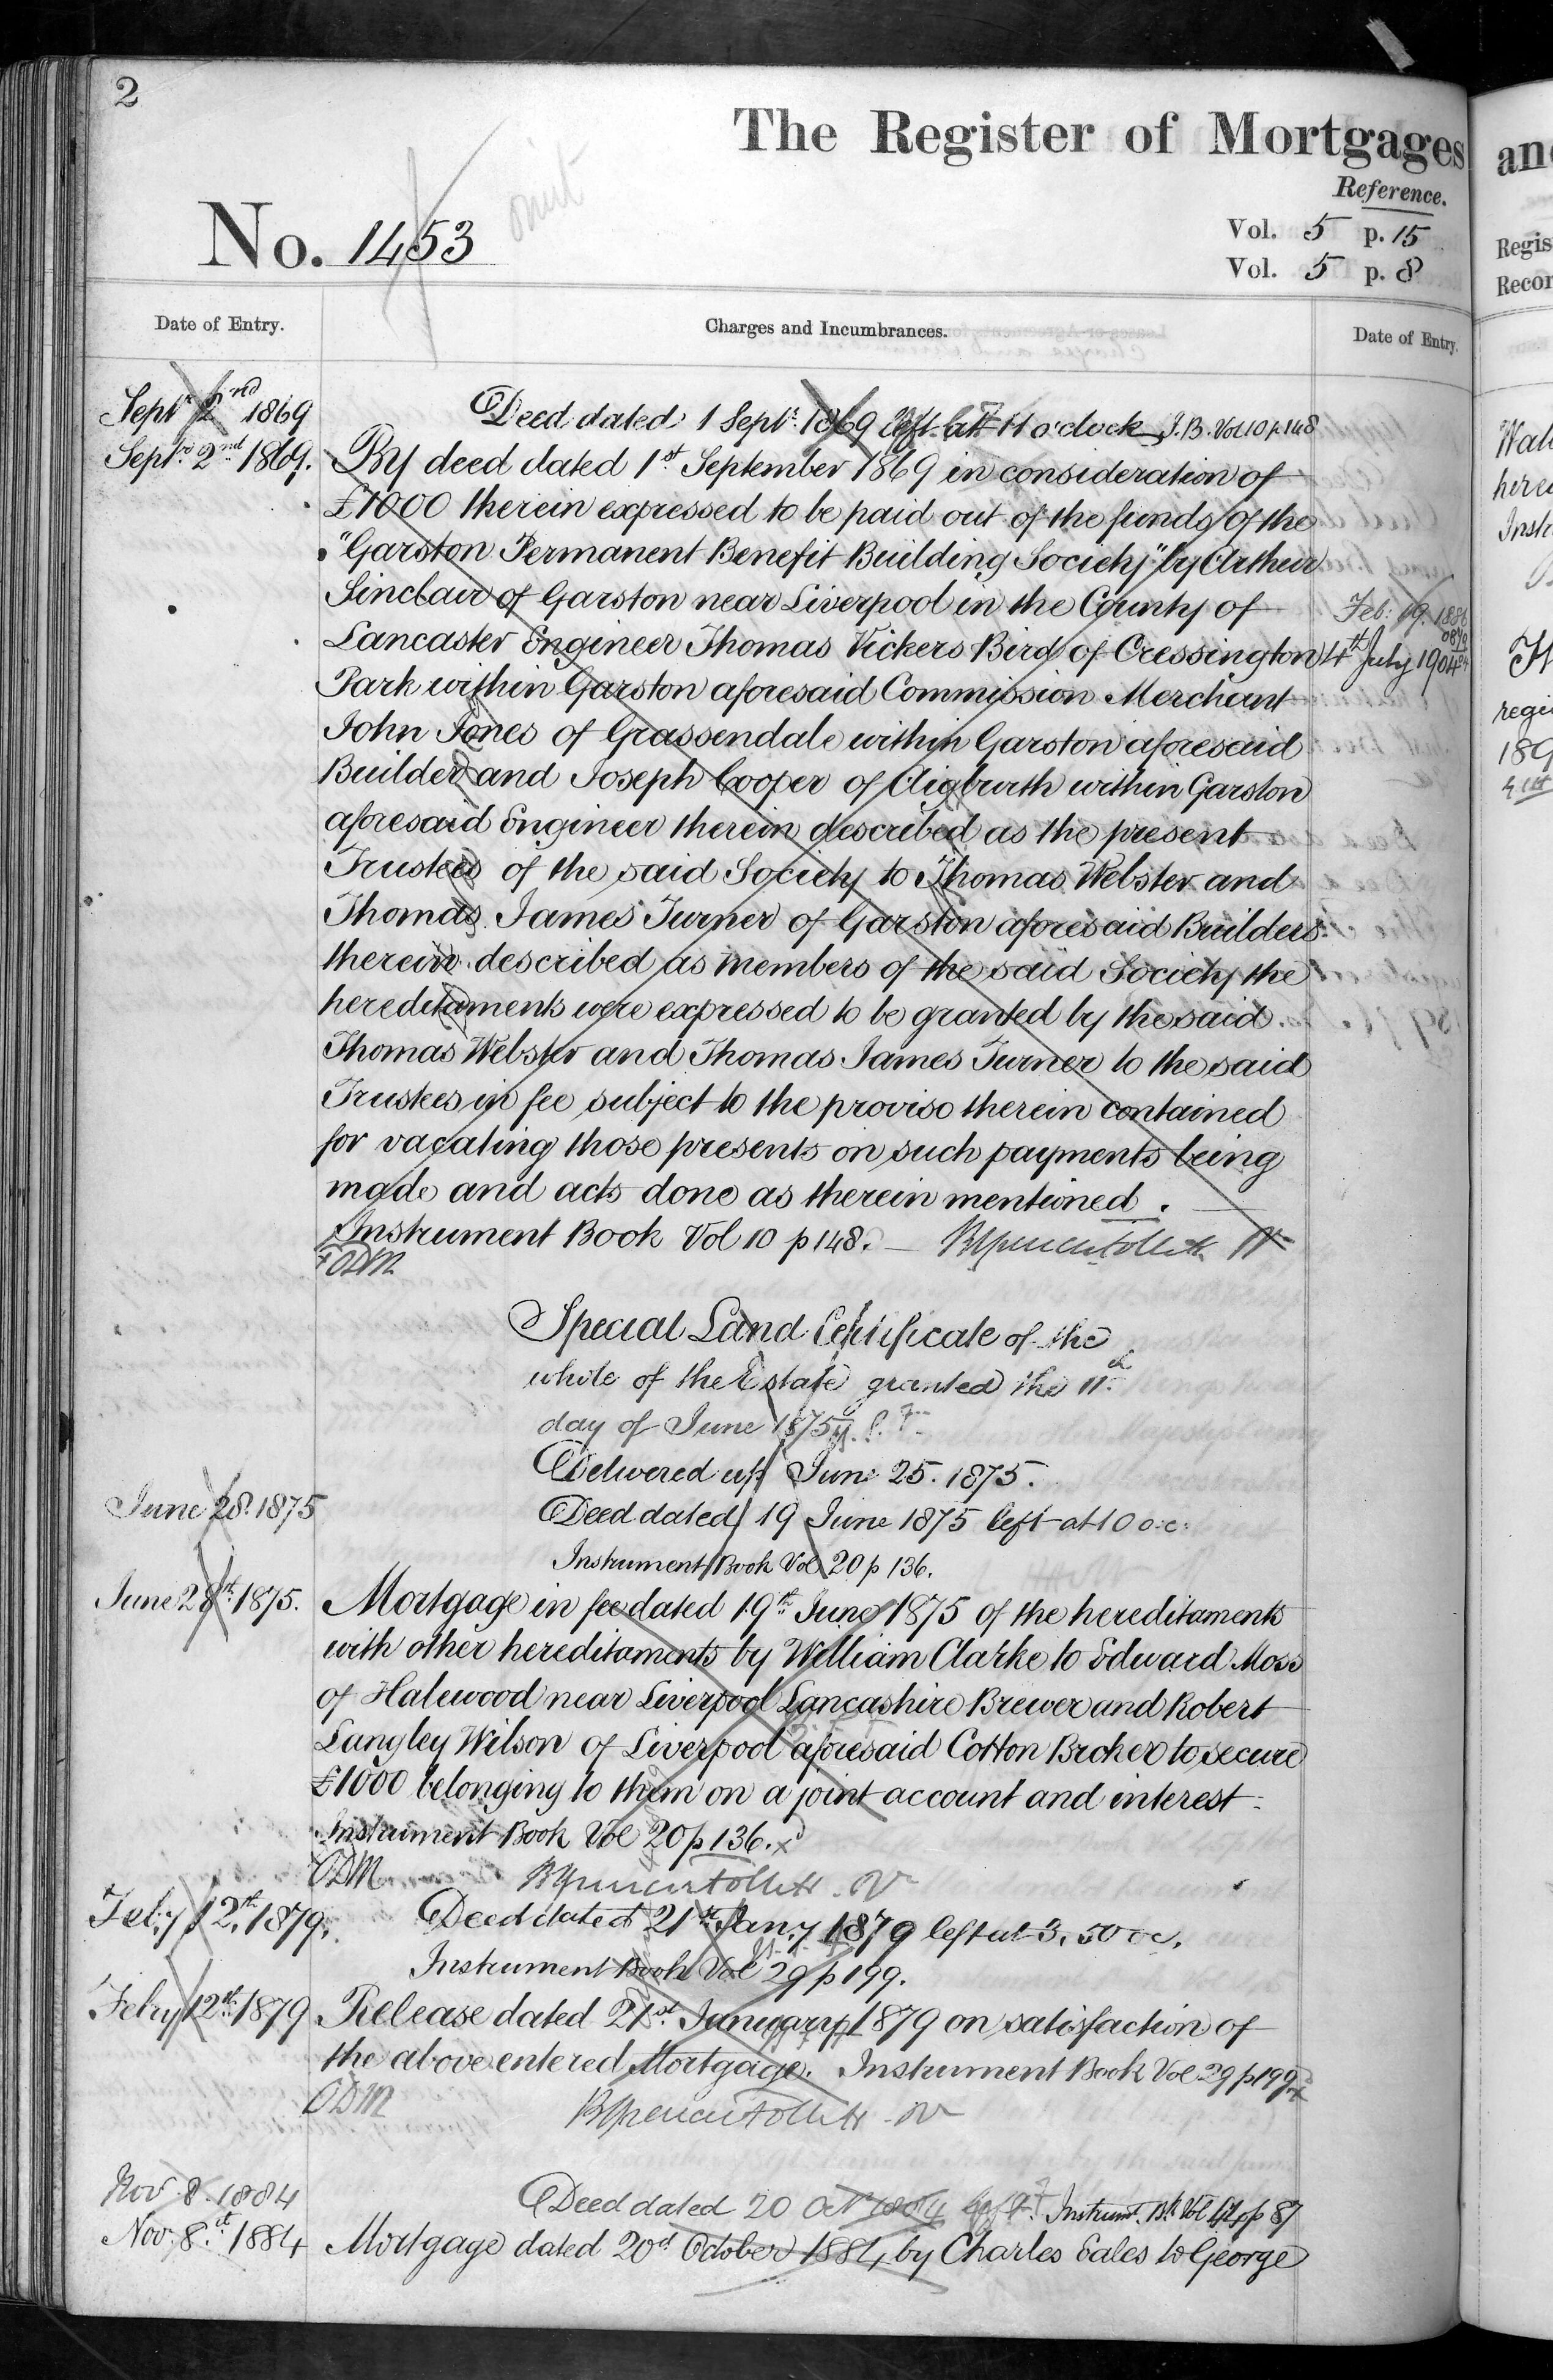 2
The Register of Mortgages
Reference.
No. 1453
omit
Vol. 5 p. 15
Vol. 5 p. 8
Date of Entry.
Charges and Incumbrances.
Date of Entry.
Septr 2nd 1869
Deed dated 1 Septr. 1869 left at 11 o'clock I.B. Vol 10 p 148
Septr 2nd 1869.
By deed dated 1st September 1869 in consideration of
£1000 therein expressed to be paid out of the funds of the
"Garston Permanent Benefit Building Society" by Arthur
Sinclair of Garston near Liverpool in the County of
Lancaster Engineer Thomas Vickers Bird of Cressington
Park within Garston aforesaid Commission Merchant
John Jones of Grassendale within Garston aforesaid
Builder and Joseph Cooper of Aigburth within Garston
aforesaid Engineer therein described as the present
Trustees of the said Society to Thomas Webster and
Thomas James Turner of Garston aforesaid Builders
therein described as members of the said Society the
hereditaments were expressed to be granted by the said
Thomas Webster and Thomas James Turner to the said
Trustees in fee subject to the proviso therein contained
for vacating those presents on such payments being
made and acts done as therein mentioned.
Instrument Book Vol 10 p 148.
ODM
Special Land Certificate of the
whole of the Estate granted the 11th
day of June 1875
Delivered up June 25. 1875.
June 28. 1875
Deed dated 19 June 1875 left at 10 oc:
Instrument Book Vol 20 p 136.
June 28th 1875.
Mortgage in fee dated 19th June 1875 of the hereditaments
with other hereditaments by William Clarke to Edward Moss
of Halewood near Liverpool Lancashire Brewer and Robert
Langley Wilson of Liverpool aforesaid Cotton Broker to secure
£1000 belonging to them on a joint account and interest.
Instrument Book Vol 20 p 136.
ODM
Feby 12th. 1879.
Deed dated 21st Jany 1879 left at 3.50 oc.
Instrument Book Vol 29 p 199.
Feby 12th 1879
Release dated 21st January 1879 on satisfaction of
the above entered Mortgage. Instrument Book Vol 29 p 199
ODM
Nov. 8. 1884
Deed dated 20 Oct 1884 Instrumt. Bk Vol p 87
Nov. 8. 1884
Mortgage dated 20th October 1884 by Charles Eales to George
Feb: 19. 1886
4th July 1904
and
Regis
Recor
here
Inst
regi
189